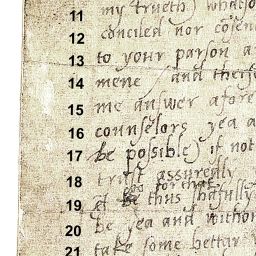 11 my trueth) whatso
12 conciled nor cosen
13 to your parson a
14 mene and therfo
15 me answer afore
16 counselors yea a
17 be possible) if not
18 trust assuredly
for that
19 be thus shafully
20 be yea and withou
21 take some bettar